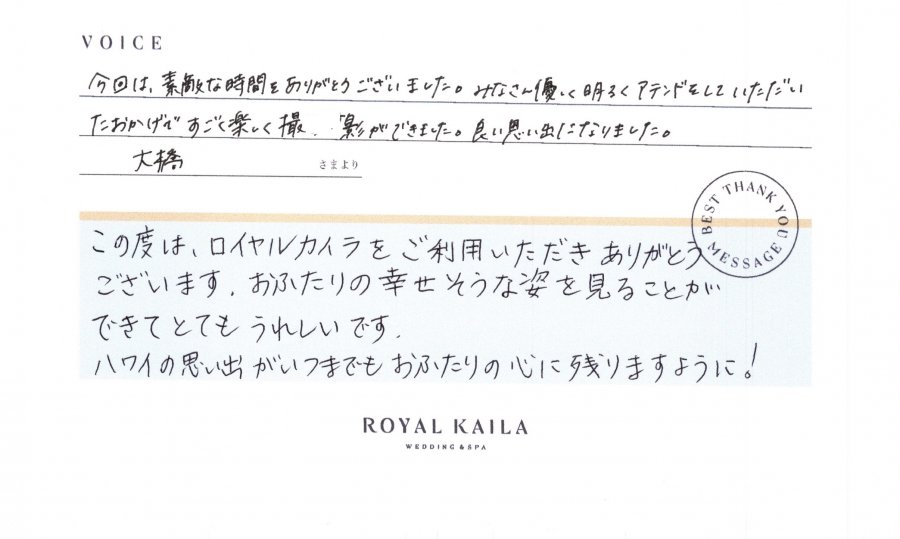 VOICE
今回は、素敵な時間をありがとうございました。みなさん優しく明るくアテンドをしていただい
たおかげですごく楽しく撮影ができました。良い思い出になりました。
大橋 さまより
BEST THANK YOU MESSAGE
この度は、ロイヤルカイラをご利用いただきありがとう
ございます。おふたりの幸せそうな姿を見ることが
できてとてもうれしいです。
ハワイの思い出がいつまでもおふたりの心に残りますように!
ROYAL KAILA
WEDDING & SPA